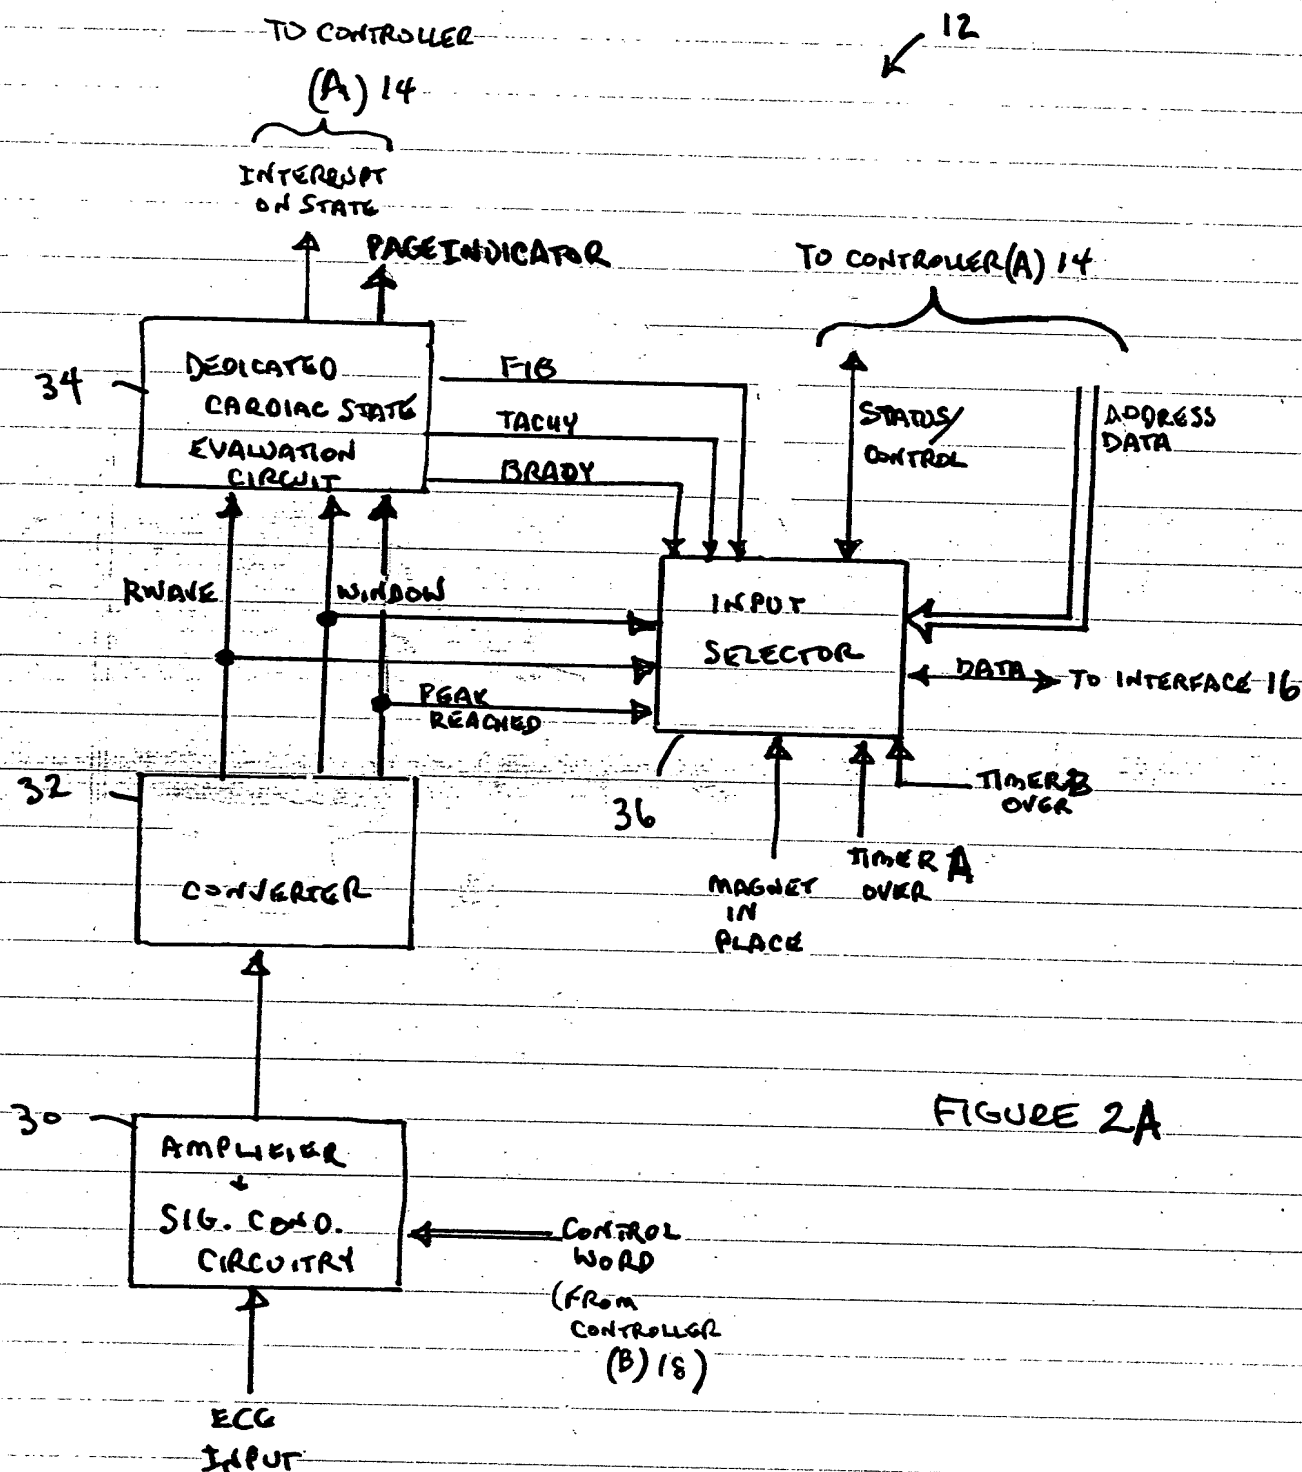 TO CONTROLLER
(A) 14
12
INTERRUPT
ON STATE
PAGE INDICATOR
TO CONTROLLER (A) 14
34
DEDICATED
CARDIAC STATE
EVALUATION
CIRCUIT
FIB
TACHY
BRADY
STATUS/
CONTROL
ADDRESS
DATA
RWAVE
WINDOW
INPUT
SELECTOR
DATA
TO INTERFACE 16
PEAK
REACHED
32
36
TIMER B
OVER
CONVERTER
TIMER A
OVER
MAGNET
IN
PLACE
30
AMPLIFIER
+
SIG. COND.
CIRCUITRY
FIGURE 2A
CONTROL
WORD
(FROM
CONTROLLER
(B) 18)
ECG
INPUT